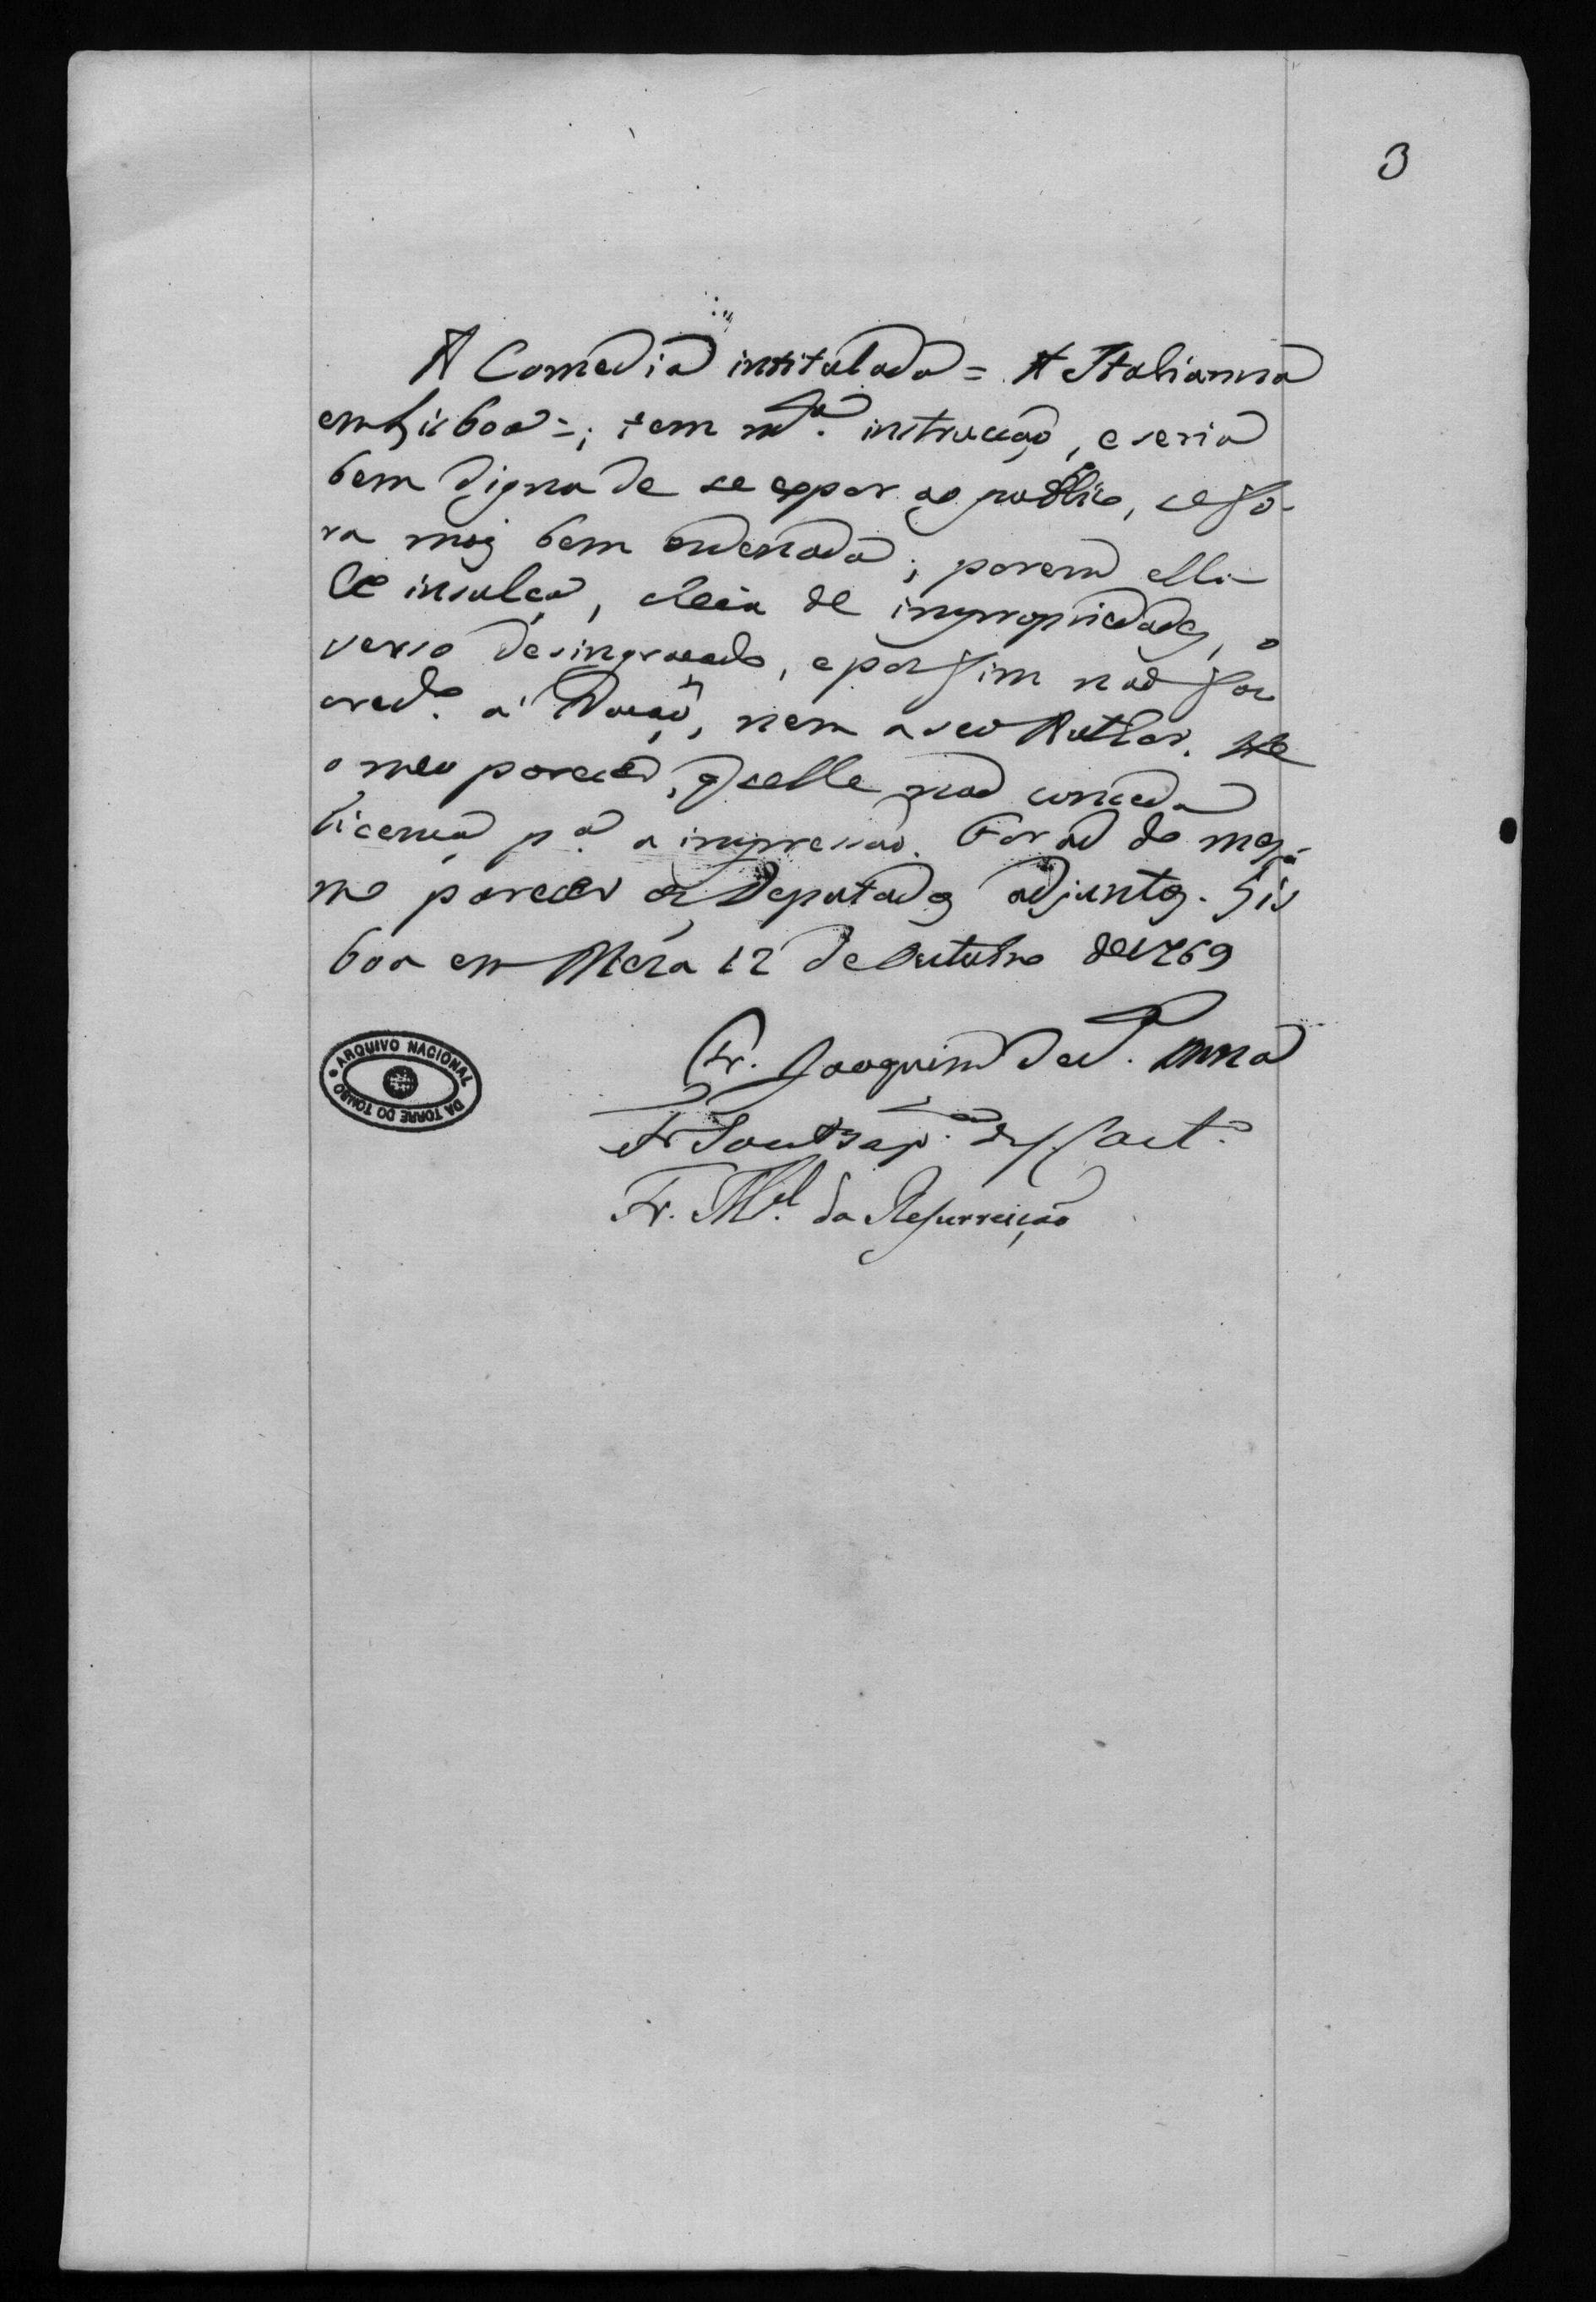 3
A Comedia intitulada = A Italianna
em Lisboa =; tem m.ta instrucção, e seria
bem digna de se expor ao publico, se fo-
ra mais bem ordenada; porem ella
he insulça, cheia de impropriedades, o
verso desingraçado, e por fim não faz
cred.o á Nação, nem a seo Author. He
o meu parecer, q̃ selhe não conceda
licença p.a a impressão. Forão do mes-
mo parecer os Deputados adjuntos. Lis
boa em Meza 12 de Outubro de 1769
Fr. Joaquim de S. Anna
Fr. João Bap.ta de S. Caet.o
Fr. M.el da Resurreição
ARQUIVO NACIONAL DA TORRE DO TOMBO